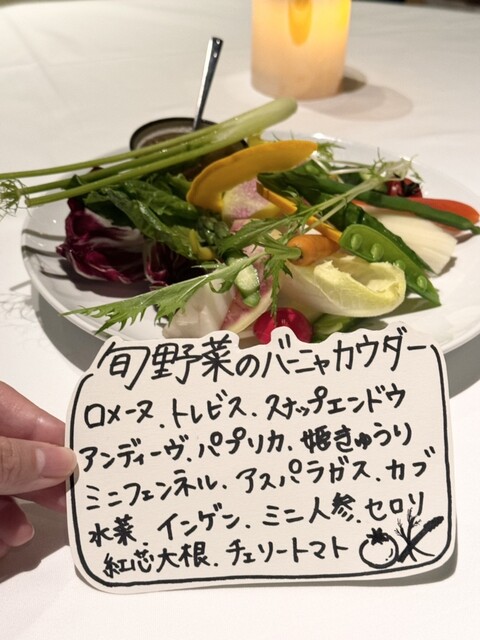 旬野菜のバーニャカウダー
ロメーヌ、トレビス、スナップエンドウ
アンディーヴ、パプリカ、姫きゅうり
ミニフェンネル、アスパラガス、カブ
水菜、インゲン、ミニ人参、セロリ
紅芯大根、チェリートマト